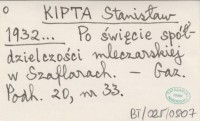 KIPTA Stanisław
1932... Po święcie spół-
dzielczości mleczarskiej
w Szaflarach. - Gaz.
Podh. 20, nr 33.
BT/025/0807